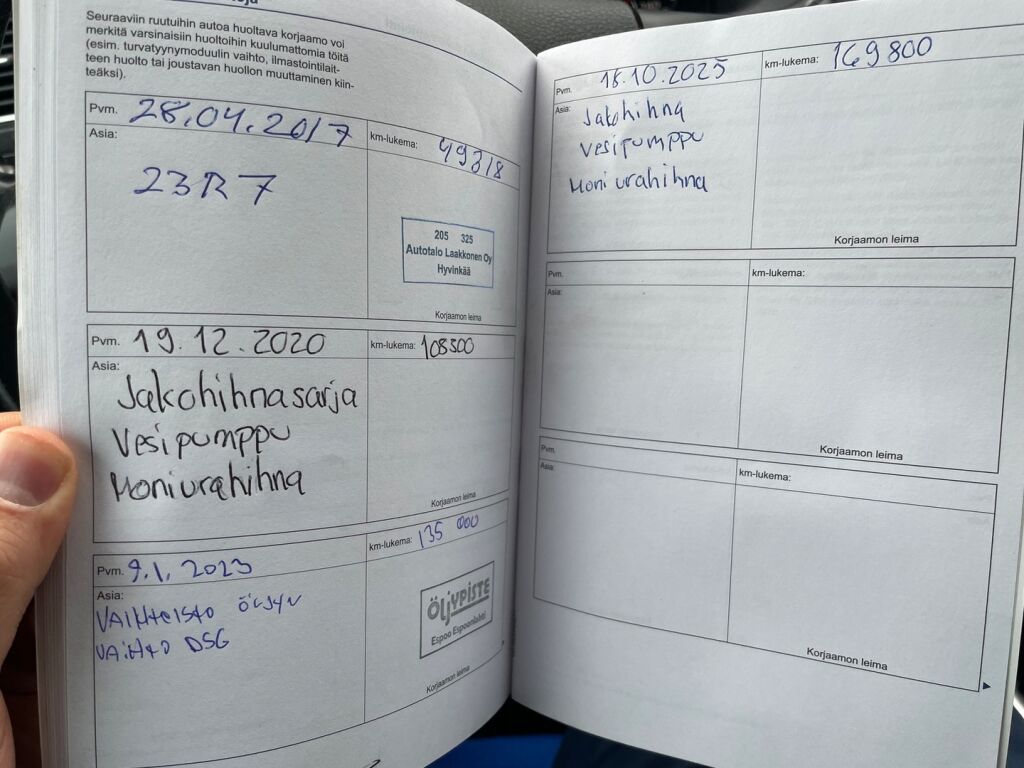 Seuraaviin ruutuihin autoa huoltava korjaamo voi
merkitä varsinaisiin huoltoihin kuulumattomia töitä
(esim. turvatyynymoduulin vaihto, ilmastointilait-
teen huolto tai joustavan huollon muuttaminen kiin-
teäksi).
Pvm. 28.04.2017 km-lukema: 49318
Asia:
23R7
205 325
Autotalo Laakkonen Oy
Hyvinkää
Korjaamon leima
Pvm. 19.12.2020 km-lukema: 108500
Asia:
Jakohihnasarja
Vesipumppu
Moniurahihna
Korjaamon leima
Pvm. 9.1.2023 km-lukema: 135 000
Asia:
VAIHteISto ÖLJYN
VAIHto DSG
ÖLJYPISTE
Espoo Espoonlahti
Korjaamon leima
Pvm. 18.10.2025 km-lukema: 169800
Asia: Jakohihna
Vesipumppu
Moniurahihna
Korjaamon leima
Pvm. km-lukema:
Asia:
Korjaamon leima
Pvm. km-lukema:
Asia:
Korjaamon leima